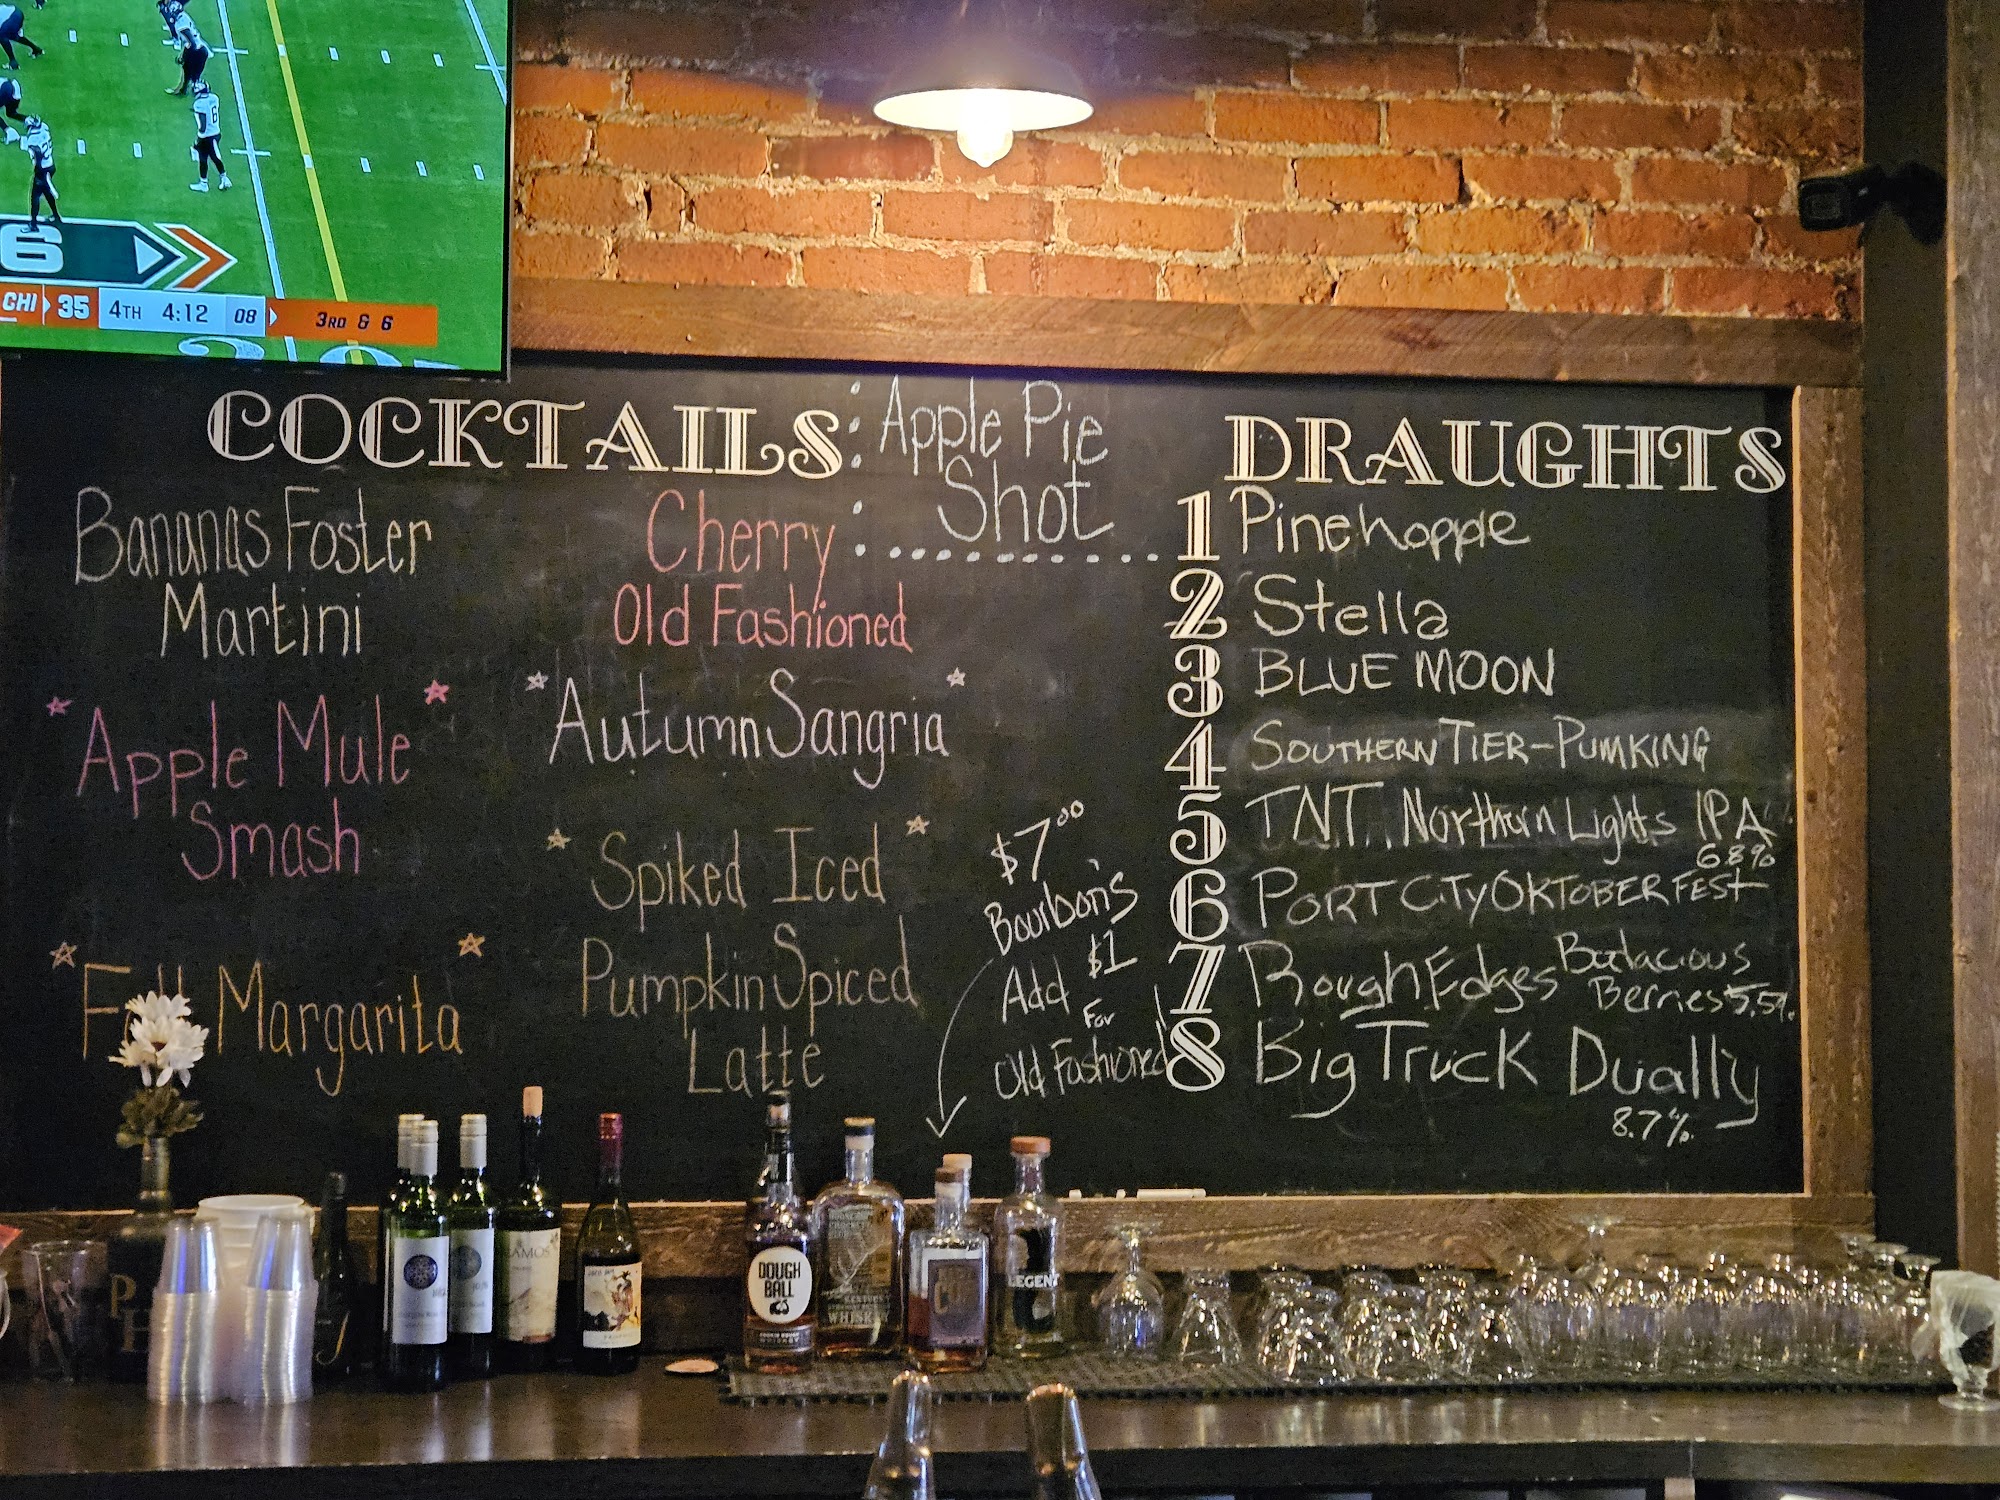 6
CHI 35 4TH 4:12 08 3RD & 6
COCKTAILS
Bananas Foster
Martini
Apple Mule
Smash
Fall Margarita
Cherry
Old Fashioned
Autumn Sangria
Spiked Iced
Pumpkin Spiced
Latte
Apple Pie
Shot
$7.00
Bourbon's
Add $1
For
Old Fashioned
DRAUGHTS
1 Pinehopple
2 Stella
3 BLUE MOON
4 SOUTHERN TIER-PUMKING
5 TNT Northern Lights IPA
6.8%
6 PORT CITY OKTOBERFEST
7 Rough Edges Batacious
Berries 5.5%
8 Big Truck Dually
8.7%
RAMOS
DOUGH
BALL
COOKIE DOUGH
WHISKEY
KENTUCKY
WHISKEY
LEGENT